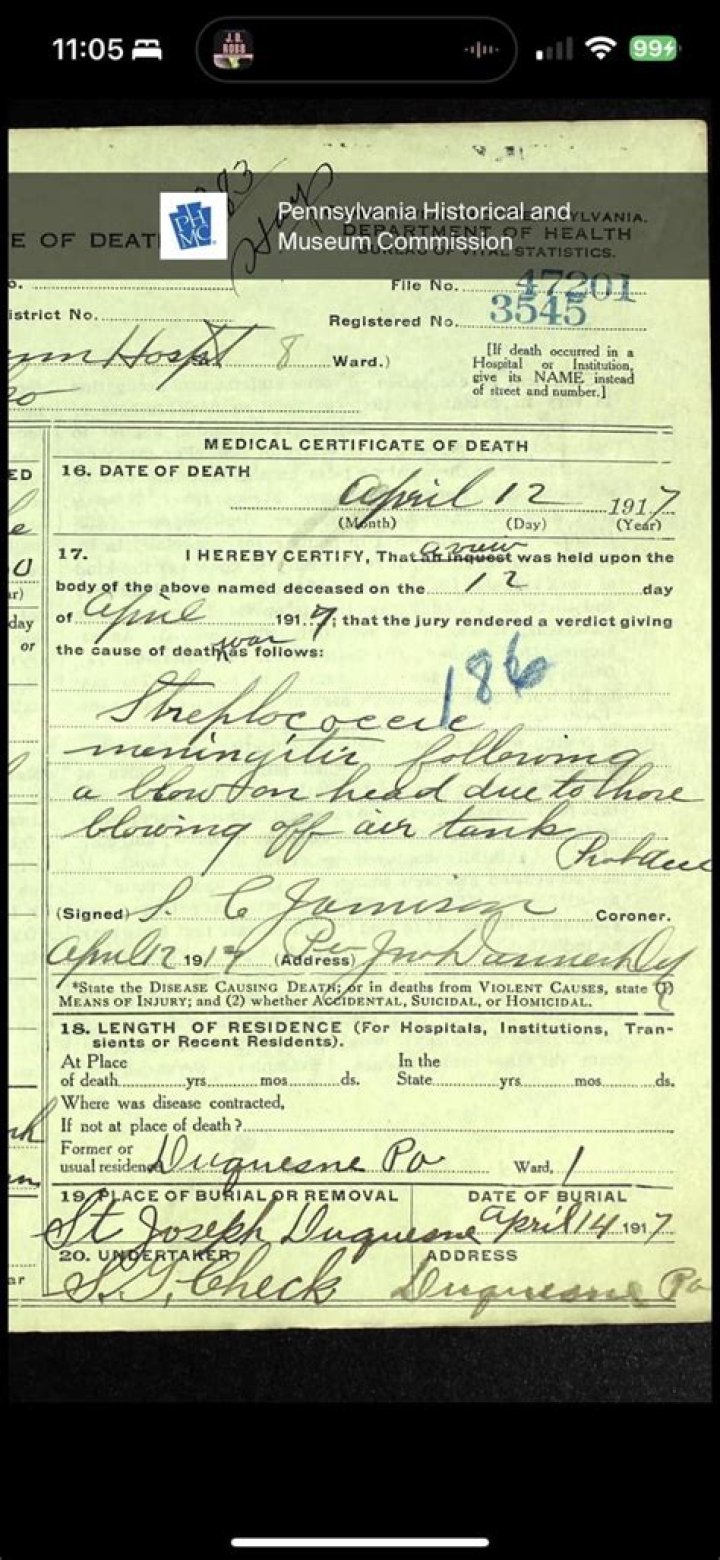 11:05
J. D. ROBB
99
383
Pennsylvania Historical and
Museum Commission
PH
MC
E OF DEAT
SYLVANIA.
DEPARTMENT OF HEALTH
BUREAU OF VITAL STATISTICS.
o.
File No. 47201
istrict No.
3545
Registered No.
Hospt
8 Ward.)
[If death occurred in a
Hospital or Institution,
give its NAME instead
of street and number.]
MEDICAL CERTIFICATE OF DEATH
ED
16. DATE OF DEATH
April 12 1917
(Month) (Day) (Year)
17. I HEREBY CERTIFY, That an inquest a view was held upon the
body of the above named deceased on the 12 day
of April 1917; that the jury rendered a verdict giving
the cause of death was as follows:
186
ar)
day
or
Streptococcic
meningitis following
a blow on head due to those
blowing off air tank
(Signed) S. C Jamison Coroner.
April 12 1917 (Address) Per
*State the DISEASE CAUSING DEATH; or in deaths from VIOLENT CAUSES, state (1)
MEANS OF INJURY; and (2) whether ACCIDENTAL, SUICIDAL, or HOMICIDAL.
18. LENGTH OF RESIDENCE (For Hospitals, Institutions, Tran-
sients or Recent Residents).
At Place In the
of death yrs mos ds. State yrs mos ds.
Where was disease contracted,
If not at place of death?
Former or
usual residence Duquesne Pa Ward, 1
19. PLACE OF BURIAL OR REMOVAL DATE OF BURIAL
St Joseph Duquesne April 14 1917
20. UNDERTAKER ADDRESS
S. G. Check Duquesne Pa